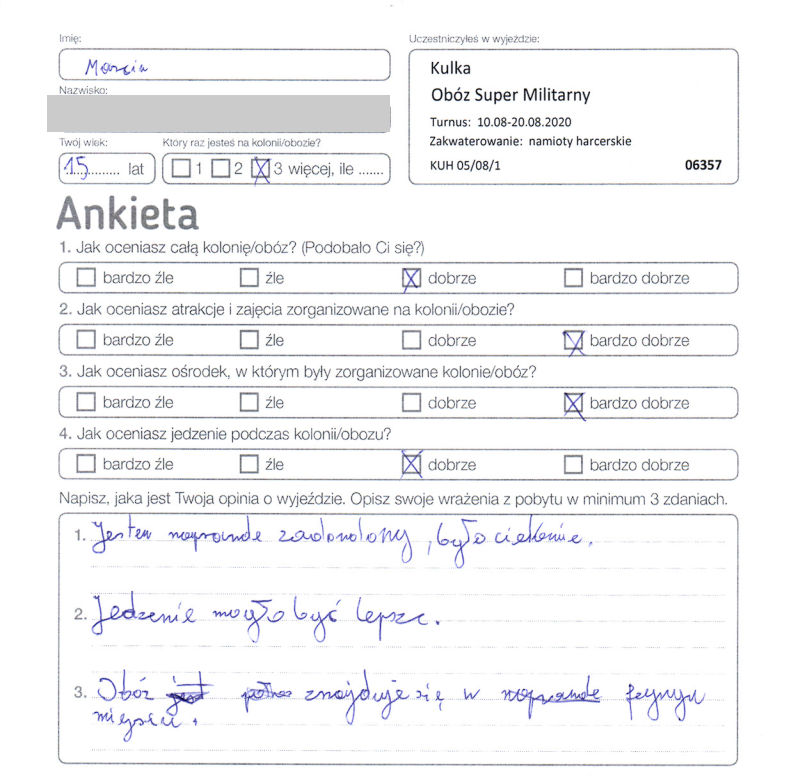 Imię:
Marcin
Nazwisko:
Twój wiek:
15 lat
Który raz jesteś na kolonii/obozie?
1 2 3 więcej, ile .......
Uczestniczyłeś w wyjeździe:
Kulka
Obóz Super Militarny
Turnus: 10.08-20.08.2020
Zakwaterowanie: namioty harcerskie
KUH 05/08/1 06357
Ankieta
1. Jak oceniasz całą kolonię/obóz? (Podobało Ci się?)
bardzo źle źle dobrze bardzo dobrze
2. Jak oceniasz atrakcje i zajęcia zorganizowane na kolonii/obozie?
bardzo źle źle dobrze bardzo dobrze
3. Jak oceniasz ośrodek, w którym były zorganizowane kolonie/obóz?
bardzo źle źle dobrze bardzo dobrze
4. Jak oceniasz jedzenie podczas kolonii/obozu?
bardzo źle źle dobrze bardzo dobrze
Napisz, jaka jest Twoja opinia o wyjeździe. Opisz swoje wrażenia z pobytu w minimum 3 zdaniach.
1. Jestem naprawde zadowolony, było ciekawie.
2. Jedzenie mogło być lepsze.
3. Obóz znajduje się w naprawde fajnym
miejscu.